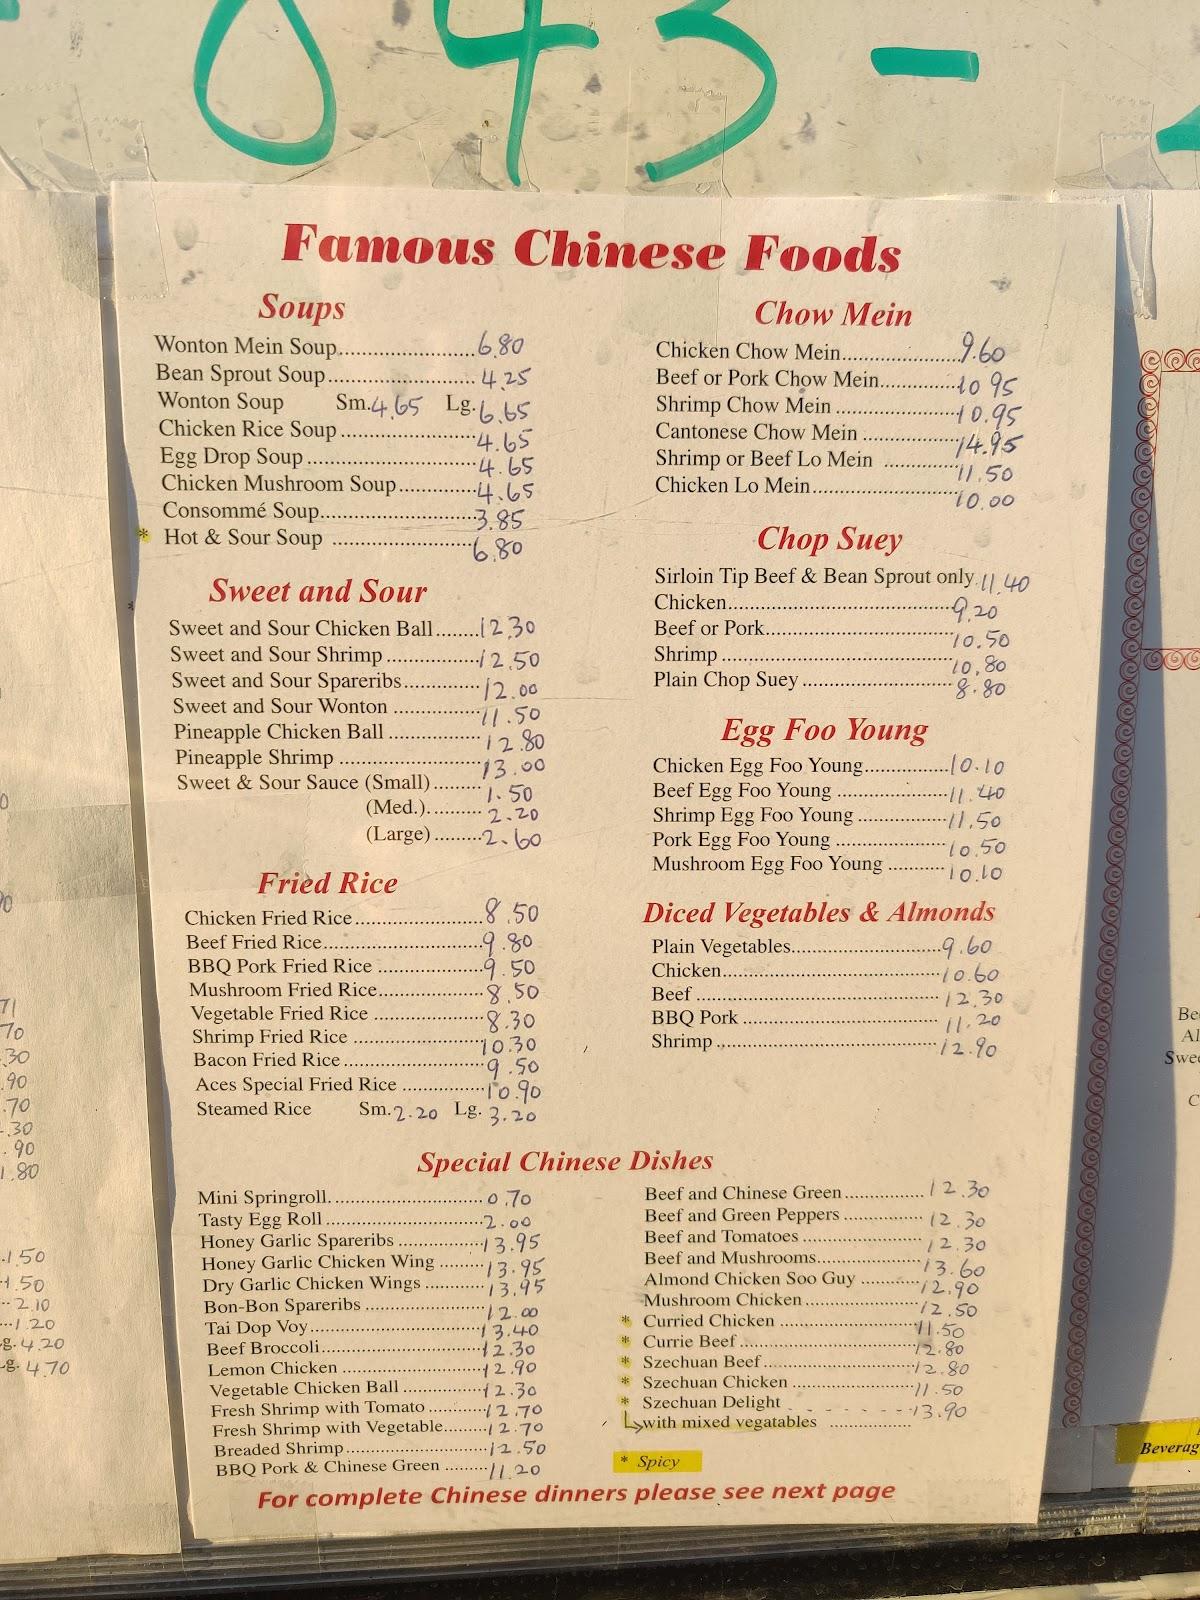 043-
Famous Chinese Foods
Soups
Wonton Mein Soup 6.80
Bean Sprout Soup 4.25
Wonton Soup Sm. 4.65 Lg. 6.65
Chicken Rice Soup 4.65
Egg Drop Soup 4.65
Chicken Mushroom Soup 4.65
Consommé Soup 3.85
* Hot & Sour Soup 6.80
Sweet and Sour
Sweet and Sour Chicken Ball 12.30
Sweet and Sour Shrimp 12.50
Sweet and Sour Spareribs 12.00
Sweet and Sour Wonton 11.50
Pineapple Chicken Ball 12.80
Pineapple Shrimp 13.00
Sweet & Sour Sauce (Small) 1.50
(Med.) 2.20
(Large) 2.60
Fried Rice
Chicken Fried Rice 8.50
Beef Fried Rice 9.80
BBQ Pork Fried Rice 9.50
Mushroom Fried Rice 8.50
Vegetable Fried Rice 8.30
Shrimp Fried Rice 10.30
Bacon Fried Rice 9.50
Aces Special Fried Rice 10.90
Steamed Rice Sm. 2.20 Lg. 3.20
Chow Mein
Chicken Chow Mein 9.60
Beef or Pork Chow Mein 10.95
Shrimp Chow Mein 10.95
Cantonese Chow Mein 14.95
Shrimp or Beef Lo Mein 11.50
Chicken Lo Mein 10.00
Chop Suey
Sirloin Tip Beef & Bean Sprout only 11.40
Chicken 9.20
Beef or Pork 10.50
Shrimp 10.80
Plain Chop Suey 8.80
Egg Foo Young
Chicken Egg Foo Young 10.10
Beef Egg Foo Young 11.40
Shrimp Egg Foo Young 11.50
Pork Egg Foo Young 10.50
Mushroom Egg Foo Young 10.10
Diced Vegetables & Almonds
Plain Vegetables 9.60
Chicken 10.60
Beef 12.30
BBQ Pork 11.20
Shrimp 12.90
Special Chinese Dishes
Mini Springroll 0.70
Tasty Egg Roll 2.00
Honey Garlic Spareribs 13.95
Honey Garlic Chicken Wing 13.95
Dry Garlic Chicken Wings 13.95
Bon-Bon Spareribs 12.00
Tai Dop Voy 13.40
Beef Broccoli 12.30
Lemon Chicken 12.90
Vegetable Chicken Ball 12.30
Fresh Shrimp with Tomato 12.70
Fresh Shrimp with Vegetable 12.70
Breaded Shrimp 12.50
BBQ Pork & Chinese Green 11.20
Beef and Chinese Green 12.30
Beef and Green Peppers 12.30
Beef and Tomatoes 12.30
Beef and Mushrooms 13.60
Almond Chicken Soo Guy 12.90
Mushroom Chicken 12.50
* Curried Chicken 11.50
* Currie Beef 12.80
* Szechuan Beef 12.80
* Szechuan Chicken 11.50
* Szechuan Delight 13.90
with mixed vegatables
* Spicy
For complete Chinese dinners please see next page
71
70
.30
.90
.70
.30
.90
1.80
1.50
1.50
2.10
1.20
g. 4.20
g. 4.70
Beverag